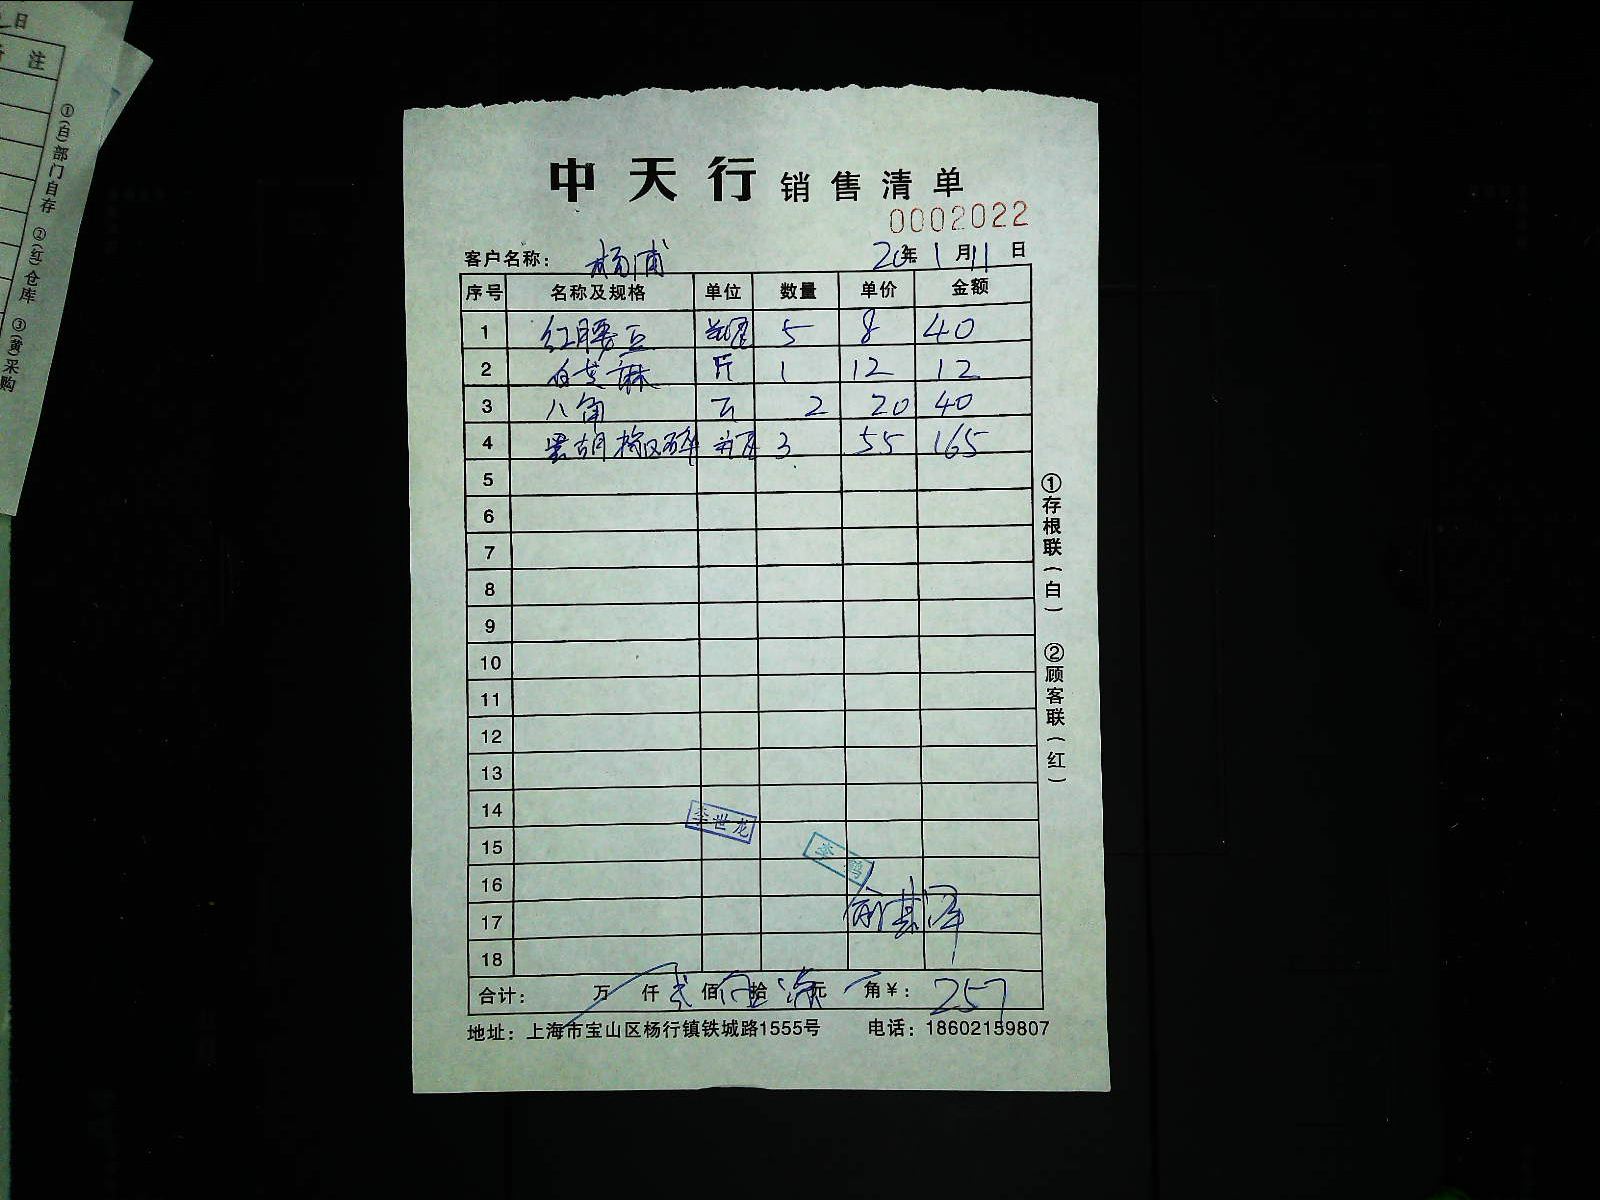 日
注
①(白)部门自存 ②(红)仓库 ③(黄)采购
中天行 销售清单
0002022
客户名称: 杨浦 20年1月11日
序号 名称及规格 单位 数量 单价 金额
1 红腰豆 罐 5 8 40
2 白芝麻 斤 1 12 12
3 八角 斤 2 20 40
4 黑胡椒碎 瓶 3 55 165
5
6
7
8
9
10
11
12
13
14
15
16
17
18
李世龙
李鹤
合计: 万 仟 贰佰伍拾柒元 角¥: 257
地址: 上海市宝山区杨行镇铁城路1555号 电话: 18602159807
①存根联(白) ②顾客联(红)